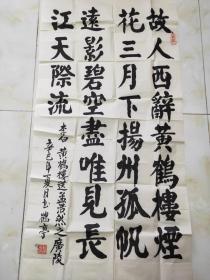 故人西辭黃鶴樓煙
花三月下揚州孤帆
遠影碧空盡唯見長
江天際流
李白黃鶴樓送孟浩然之廣陵
辛巳年夏月書